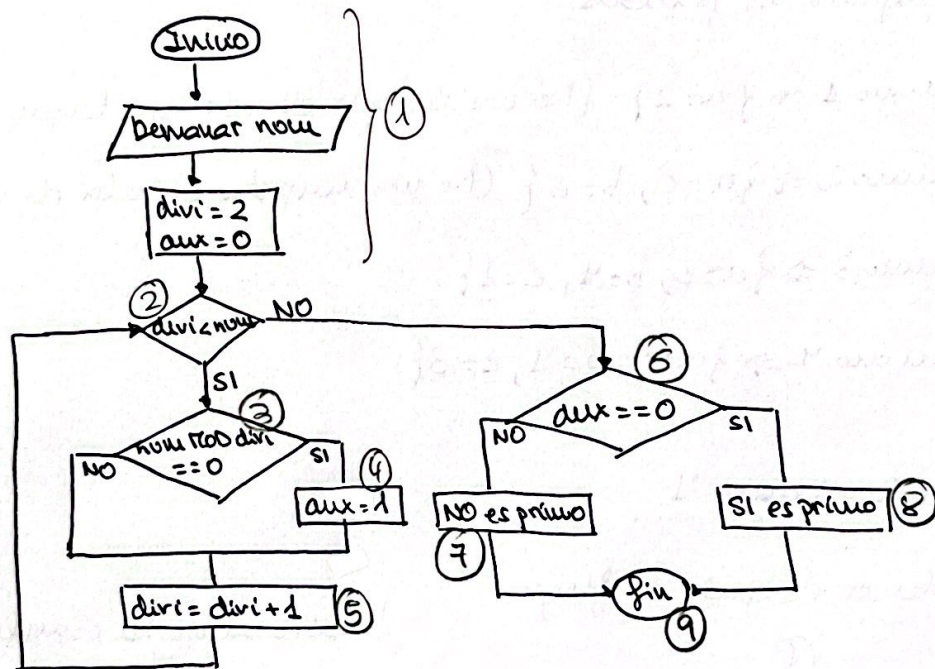 Inicio
Demanar num
1
divi = 2
aux = 0
2
divi < num
NO
SI
3
num MOD divi
== 0
NO
SI
4
aux = 1
divi = divi + 1
5
6
aux == 0
NO
SI
NO es primo
7
SI es primo
8
fin
9